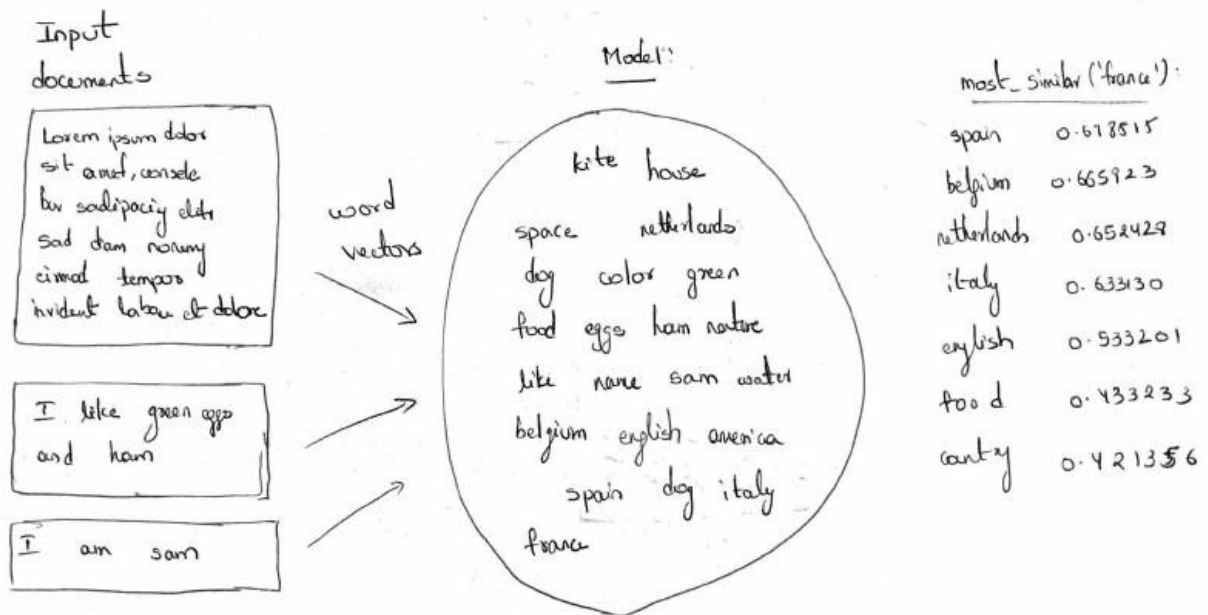 Input
documents
Lorem ipsum dolor
sit amet, consete
tur sadipscing elitr
sed diam nonumy
eirmod tempor
invident labore et dolore
I like green eggs
and ham
I am sam
word
vectors
Model:
kite house
space netherlands
dog color green
food eggs ham nature
like name sam water
belgium english america
spain dog italy
france
most_similar('france'):
spain 0.678515
belgium 0.665923
netherlands 0.652428
italy 0.633130
english 0.533201
food 0.433233
country 0.421356